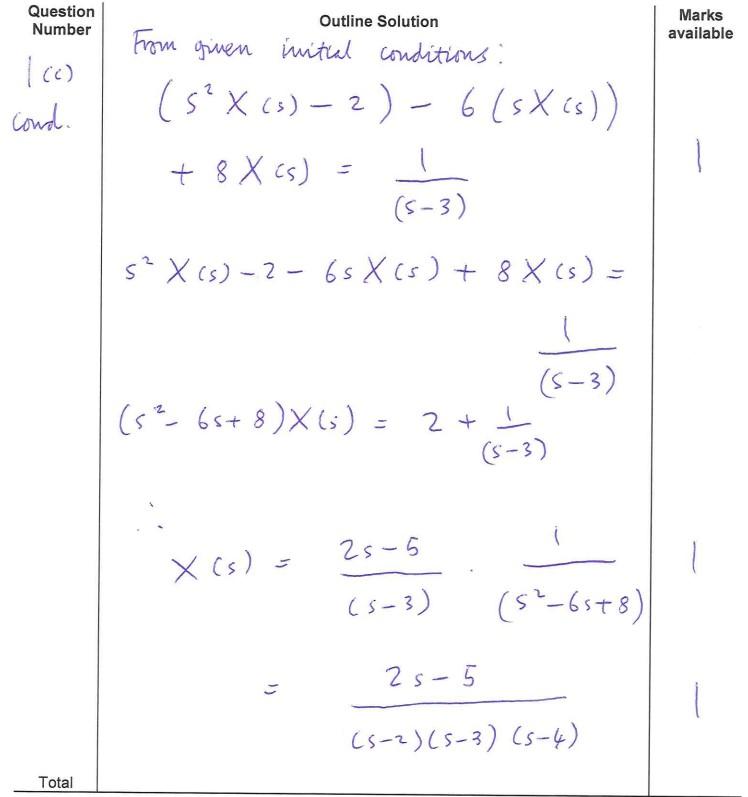 Question Number
Outline Solution
Marks available
1 (c)
Cond.
From given initial conditions:
(s² X(s) - 2) - 6 (sX(s))
+ 8 X(s) = 1/(s-3)
1
s² X(s) - 2 - 6s X(s) + 8 X(s) =
1/(s-3)
(s² - 6s + 8) X(s) = 2 + 1/(s-3)
∴
X(s) = (2s-5)/(s-3) . 1/(s²-6s+8)
1
= (2s-5)/((s-2)(s-3)(s-4))
1
Total